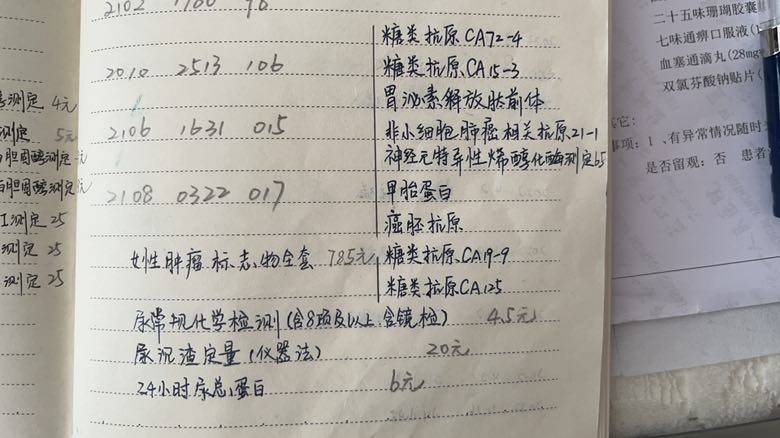 测定 4元
测定 5元
胆固醇测定
胆固醇测定
I测定 25
测定 25
测定 25
2102 1760 96
糖类抗原CA72-4
2010 2513 106
糖类抗原CA15-3
胃泌素解放肽前体
2106 1631 015
非小细胞肺癌相关抗原21-1
神经元特异性烯醇化酶测定65
2108 0322 017
甲胎蛋白
癌胚抗原
女性肿瘤标志物全套 785元
糖类抗原CA19-9
糖类抗原CA125
尿常规化学检测(含8项及以上,含镜检) 4.5元
尿沉渣定量(仪器法) 20元
24小时尿总蛋白 6元
二十五味珊瑚胶囊
七味通痹口服液(1
血塞通滴丸(28mg
双氯芬酸钠贴片(
它:
事项:1、有异常情况随时
是否留观:否 患者